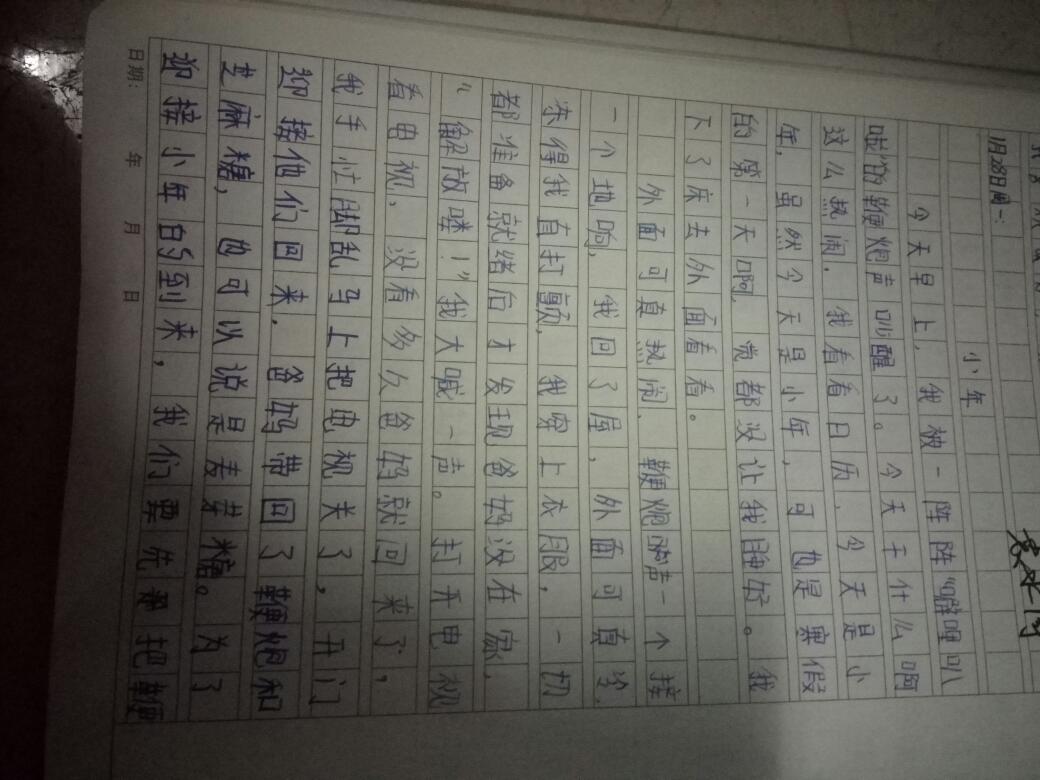 1月28日周一:
小年
今天早上，我被一阵阵“噼哩叭
啦”的鞭炮声叫醒了。今天干什么啊
这么热闹．我看看日历．今天是小
年，虽然今天是小年，可也是寒假
的第一天啊，觉都没让我睡好。我
下了床去外面看看。
外面可真热闹．鞭炮响声一个接
一个地响，我回了屋，外面可真冷．
冻得我直打颤，我穿上衣服，一切
都准备就绪后才发现爸妈没在家，
“解放喽！”我大喊一声。打开电视
看电视，没看多久爸妈就回来了，
我手忙脚乱马上把电视关了，开门
迎接他们回来．爸妈带回了鞭炮和
芝麻糖，也可以说是麦芽糖。为了
迎接小年的到来，我们要先帮把鞭
日期：年 月 日